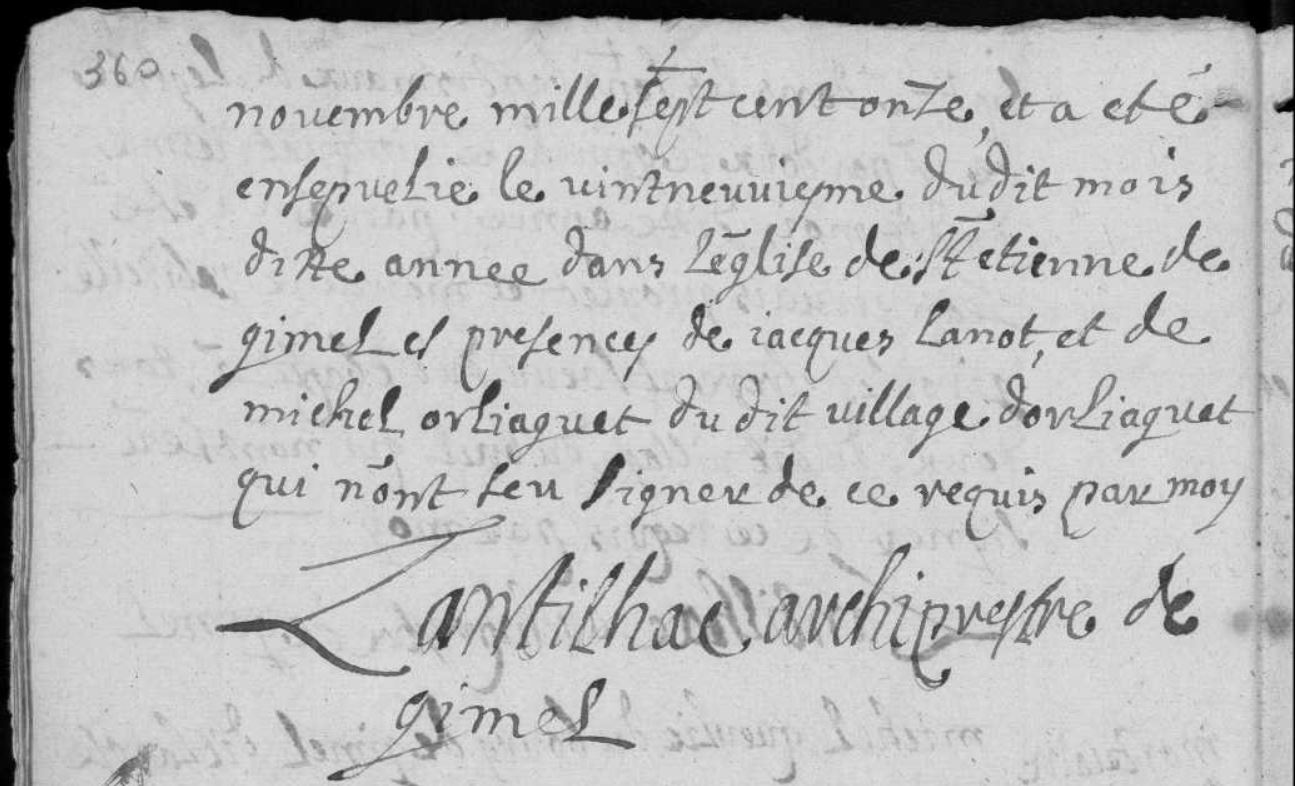 360
novembre mille sept cent onze, et a eté
ensepvelie le vintneuviesme dudit mois
ditte annee dans l'eglise de St etienne de
gimel es presences de jacques lanot, et de
michel orliaguet du dit village d'orliaguet
qui n'ont seu signer de ce requis par moy
Lantilhac archiprestre de
gimel